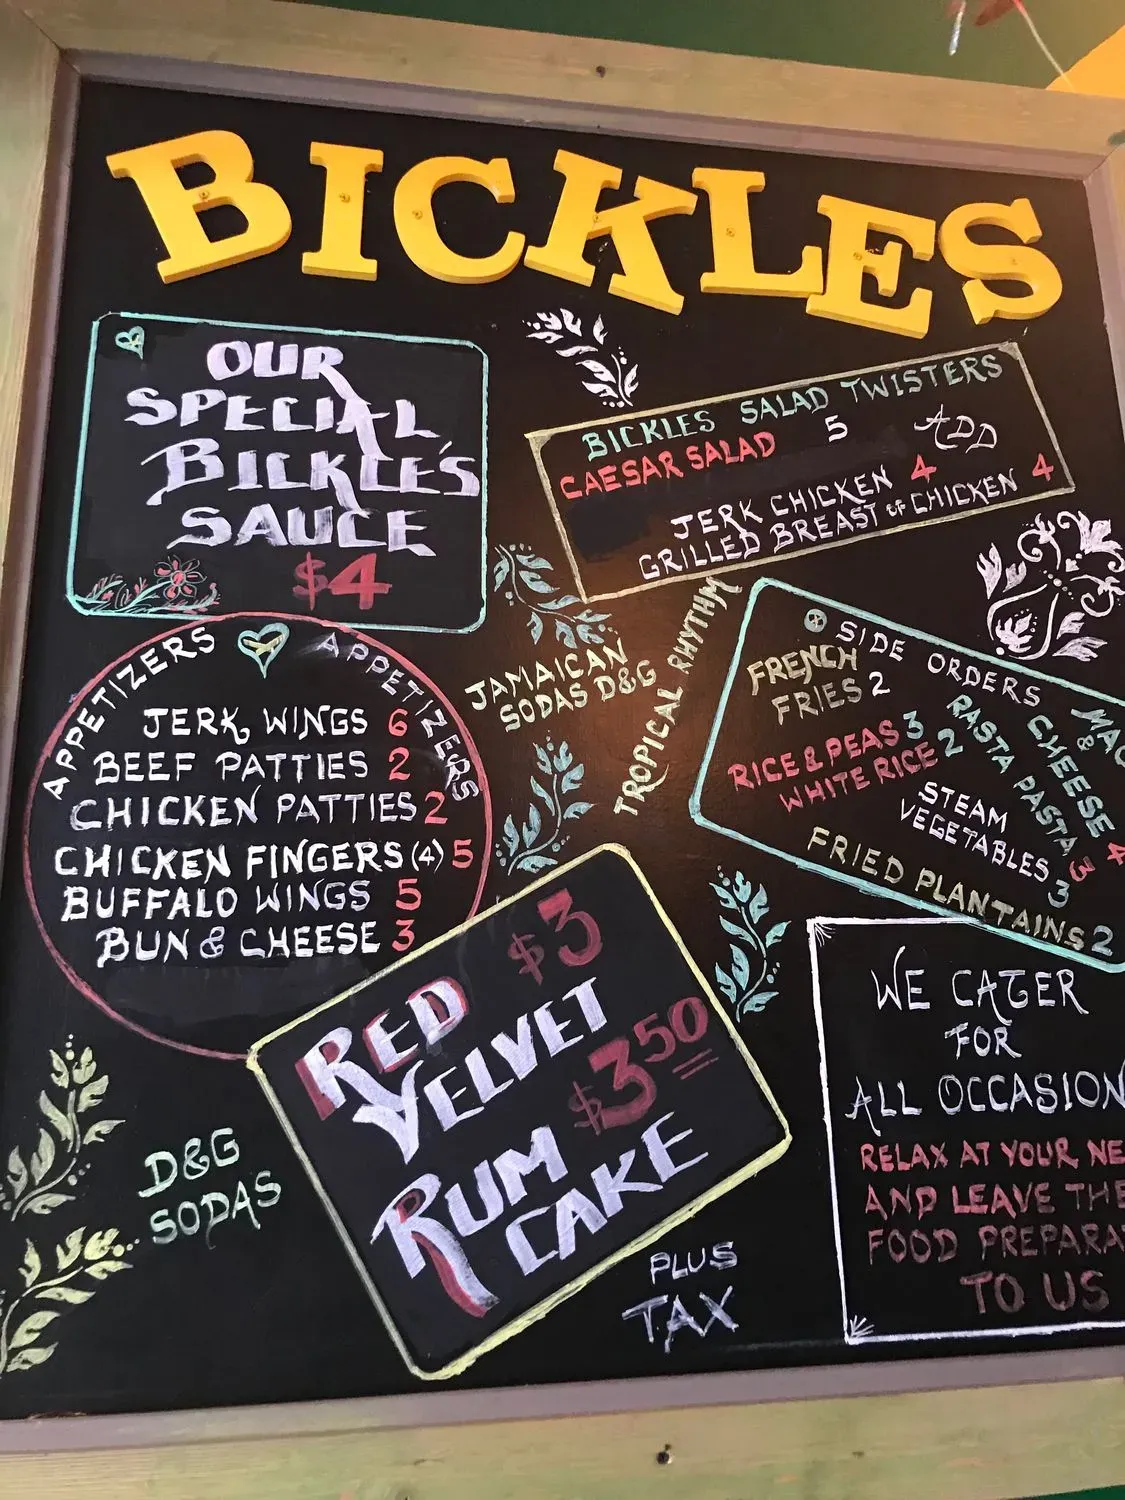 BICKLES
OUR
SPECIAL
BICKLE'S
SAUCE
$4
BICKLES SALAD TWISTERS
CAESAR SALAD 5 ADD
JERK CHICKEN 4
GRILLED BREAST OF CHICKEN 4
APPETIZERS APPETIZERS
JERK WINGS 6
BEEF PATTIES 2
CHICKEN PATTIES 2
CHICKEN FINGERS (4) 5
BUFFALO WINGS 5
BUN & CHEESE 3
JAMAICAN
SODAS D&G
TROPICAL RHYTHM
SIDE ORDERS
FRENCH
FRIES 2
RICE & PEAS 3
WHITE RICE 2
STEAM
VEGETABLES 3
RASTA PASTA 3
MAC
& CHEESE 4
FRIED PLANTAINS 2
RED $3
VELVET
RUM $3.50
CAKE
D&G
SODAS
PLUS
TAX
WE CATER
FOR
ALL OCCASION
RELAX AT YOUR NE
AND LEAVE THE
FOOD PREPARA
TO US